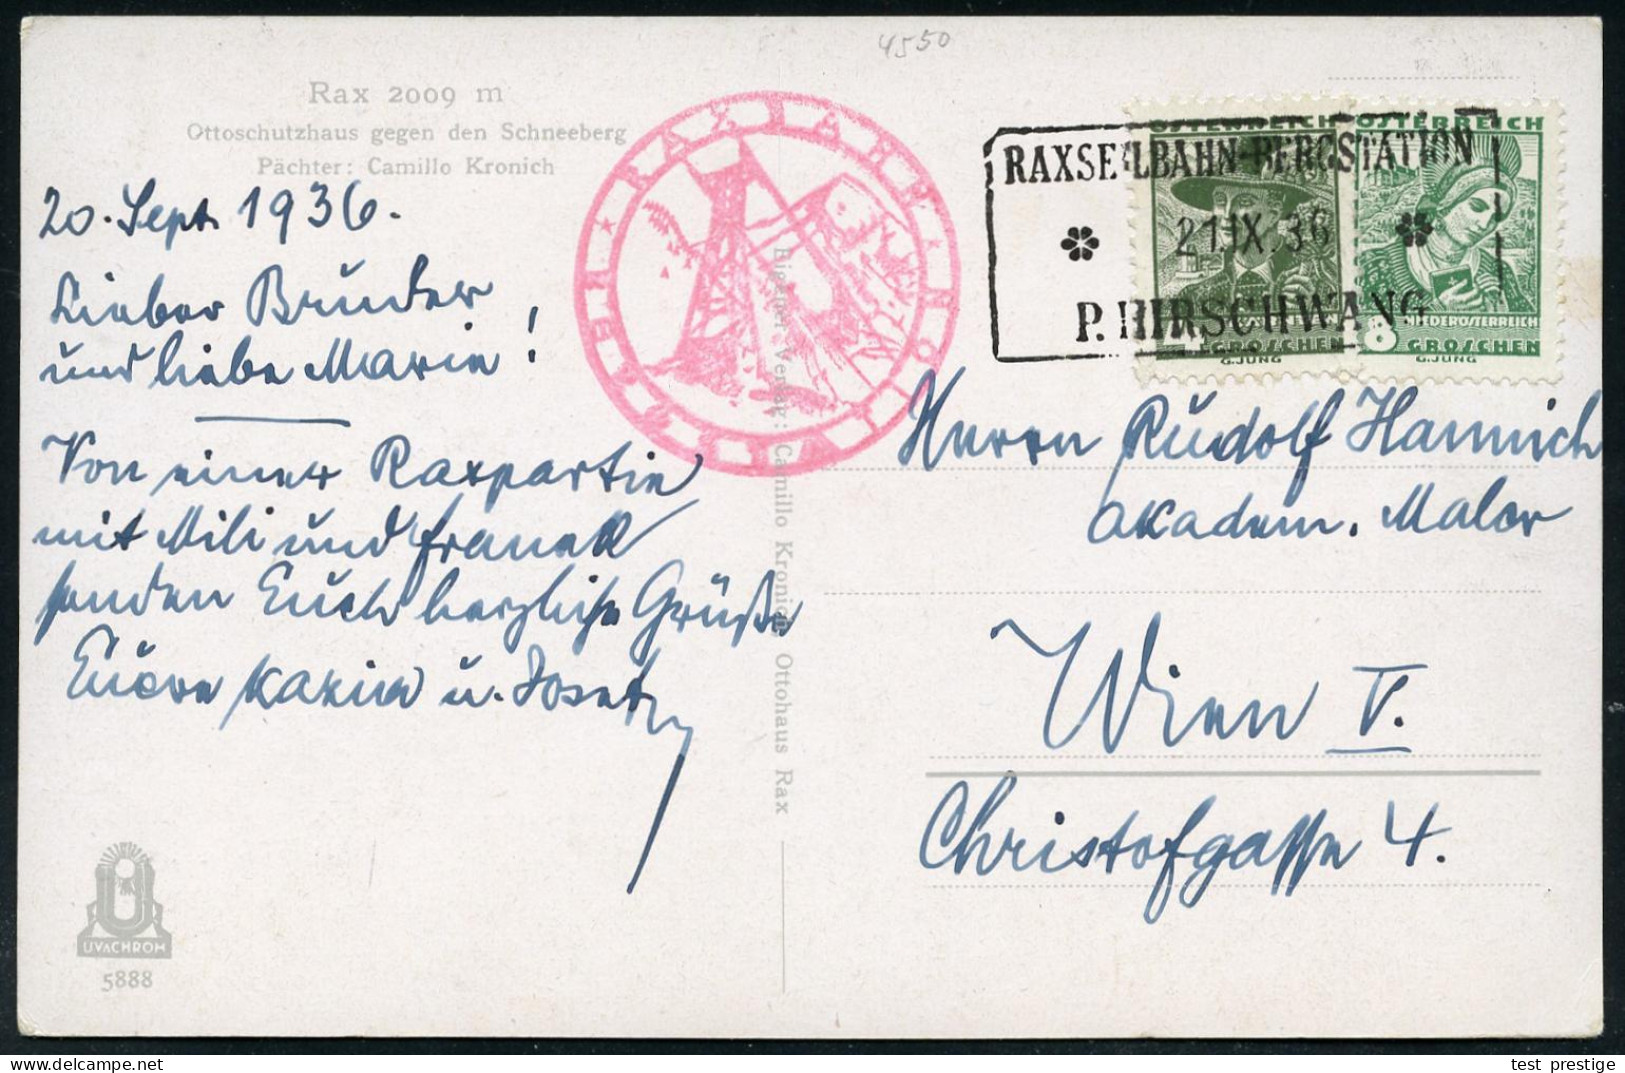 4550
Rax 2009 m
Ottoschutzhaus gegen den Schneeberg
Pächter: Camillo Kronich
20. Sept. 1936.
Lieber Bruder
und liebe Marie!
Von einer Raxpartie
mit Mili und Franzl
senden Euch herzliche Grüße
Euere u. Josef
UVACHROM
5888
Eigener Verlag: Camillo Kronich, Ottohaus Rax
RAXBAHN
ÖSTERREICH ÖSTERREICH
RAXSEILBAHN-BERGSTATION
21 IX 36
P. HIRSCHWANG
NIEDERÖSTERREICH
GROSCHEN 8 GROSCHEN
G.JUNG G.JUNG
Herrn Rudolf Hannich
akadem. Maler
Wien V.
Christofgasse 4.
test prestige